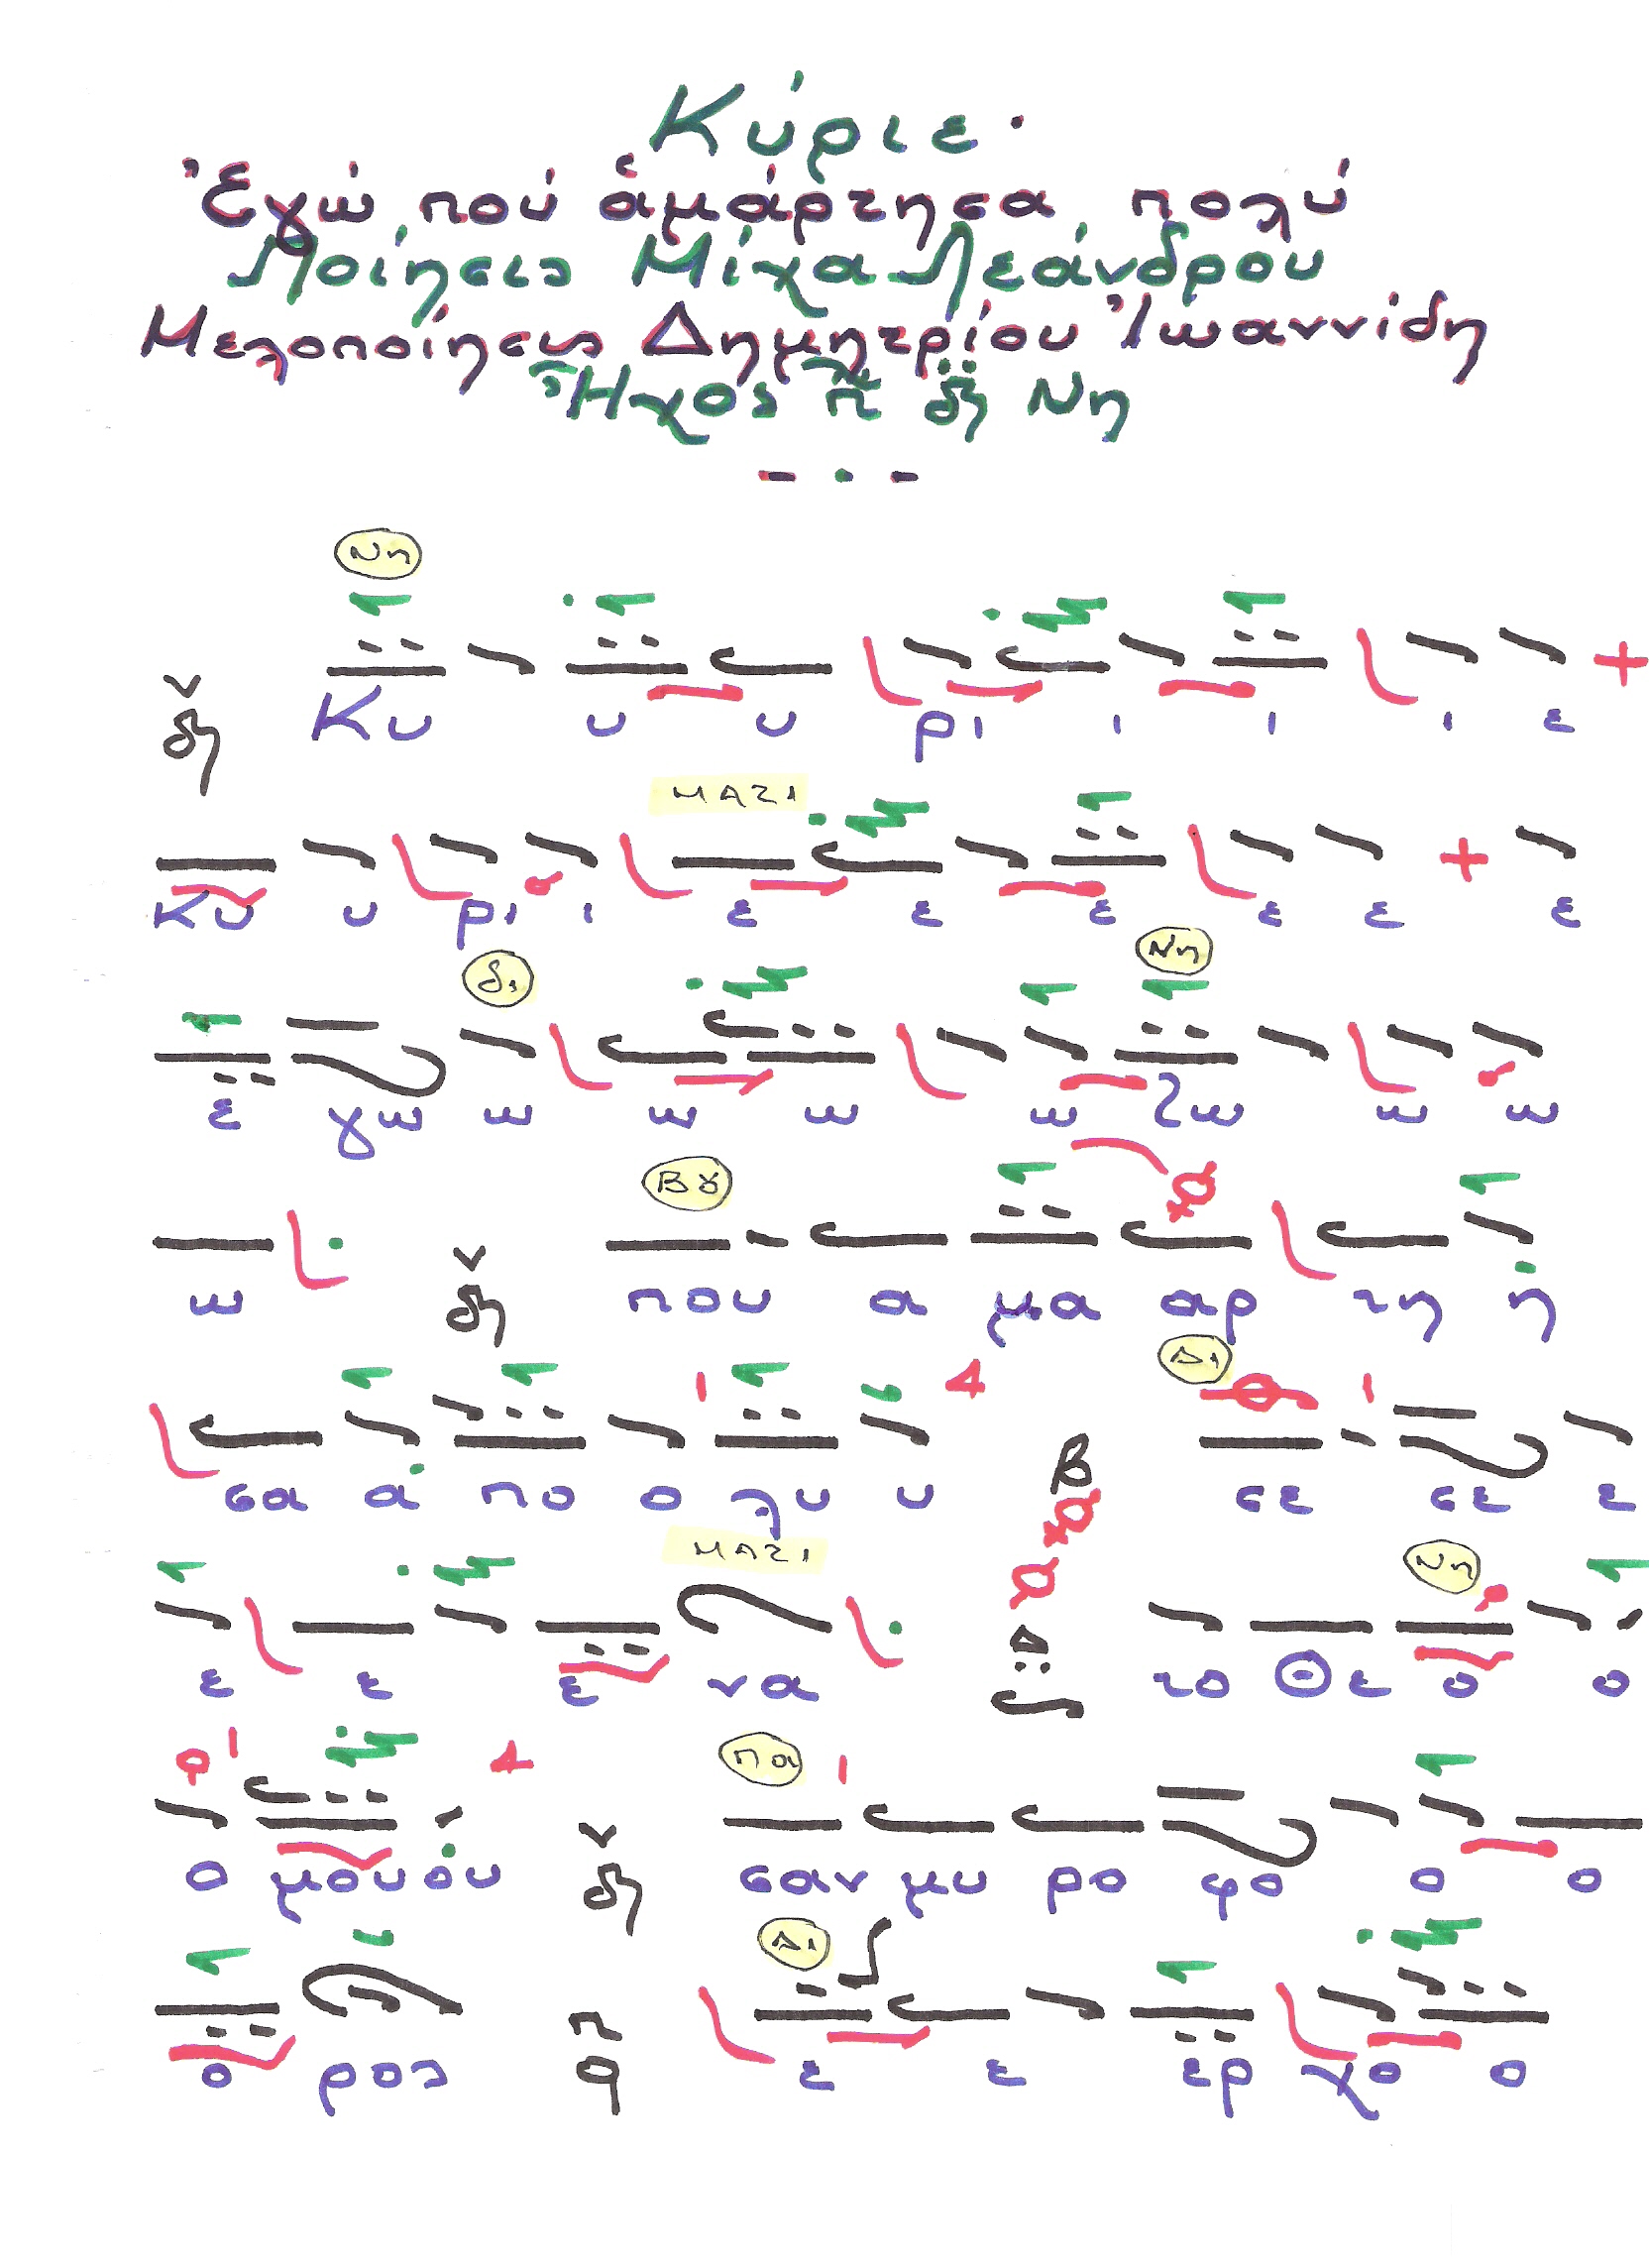 Κύριε.
Ἐγώ πού ἁμάρτησα πολύ
Ποίησις Μίχα Λεάνδρου
Μελοποίησις Δημητρίου Ἰωαννίδη
Ἦχος π δη Νη
Νη
Κυ υ υ ρι ι ι ι ε
ΜΑΖΙ
Κυ υ ρι ι ε ε ε ε ε ε
δι Νη
ε γω ω ω ω ω ζω ω ω
Βȣ
ω που α μα αρ τη η
Δι
σα α πο ο λυ υ σε σε ε
ΜΑΖΙ Νη
ε ε ε να το Θε ο ο
Πα
ο μου ου σαν μυ ρο φο ο ο
Δι
ο ρος ε ε ερ χο ο